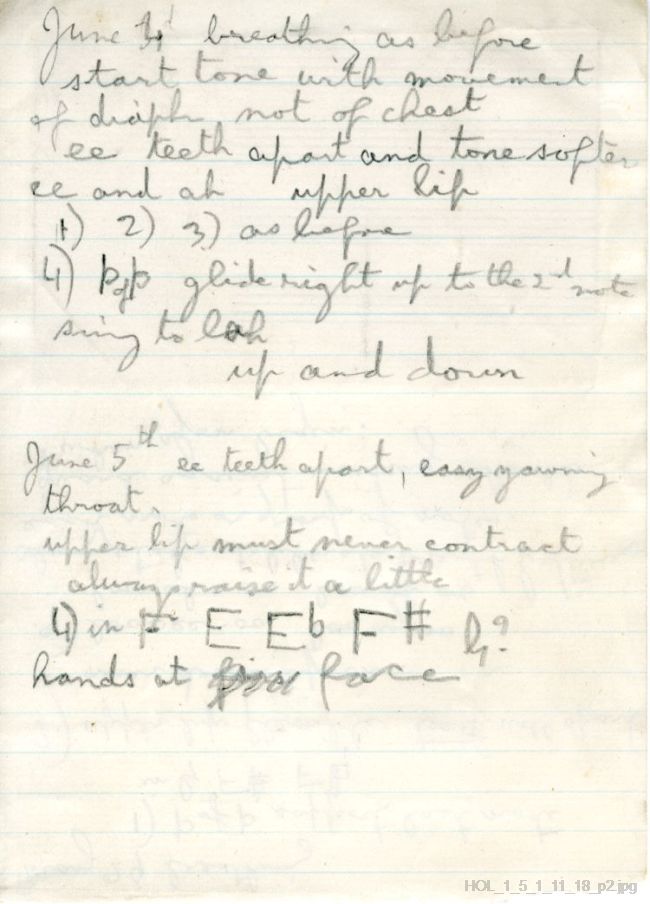 June breathing as before
start tone with movement
of diaph not of chest
ee teeth apart and tone softer
ee and ah upper lip
1) 2) 3) as before
4) glide right up to the 2nd note
sing to
up and down
June 5th ee teeth apart, easy yawning
throat.
upper lip must never contract
always raise it a little
4) in F E Eb F#
hands at face
HOL_1_5_1_11_18_p2.jpg